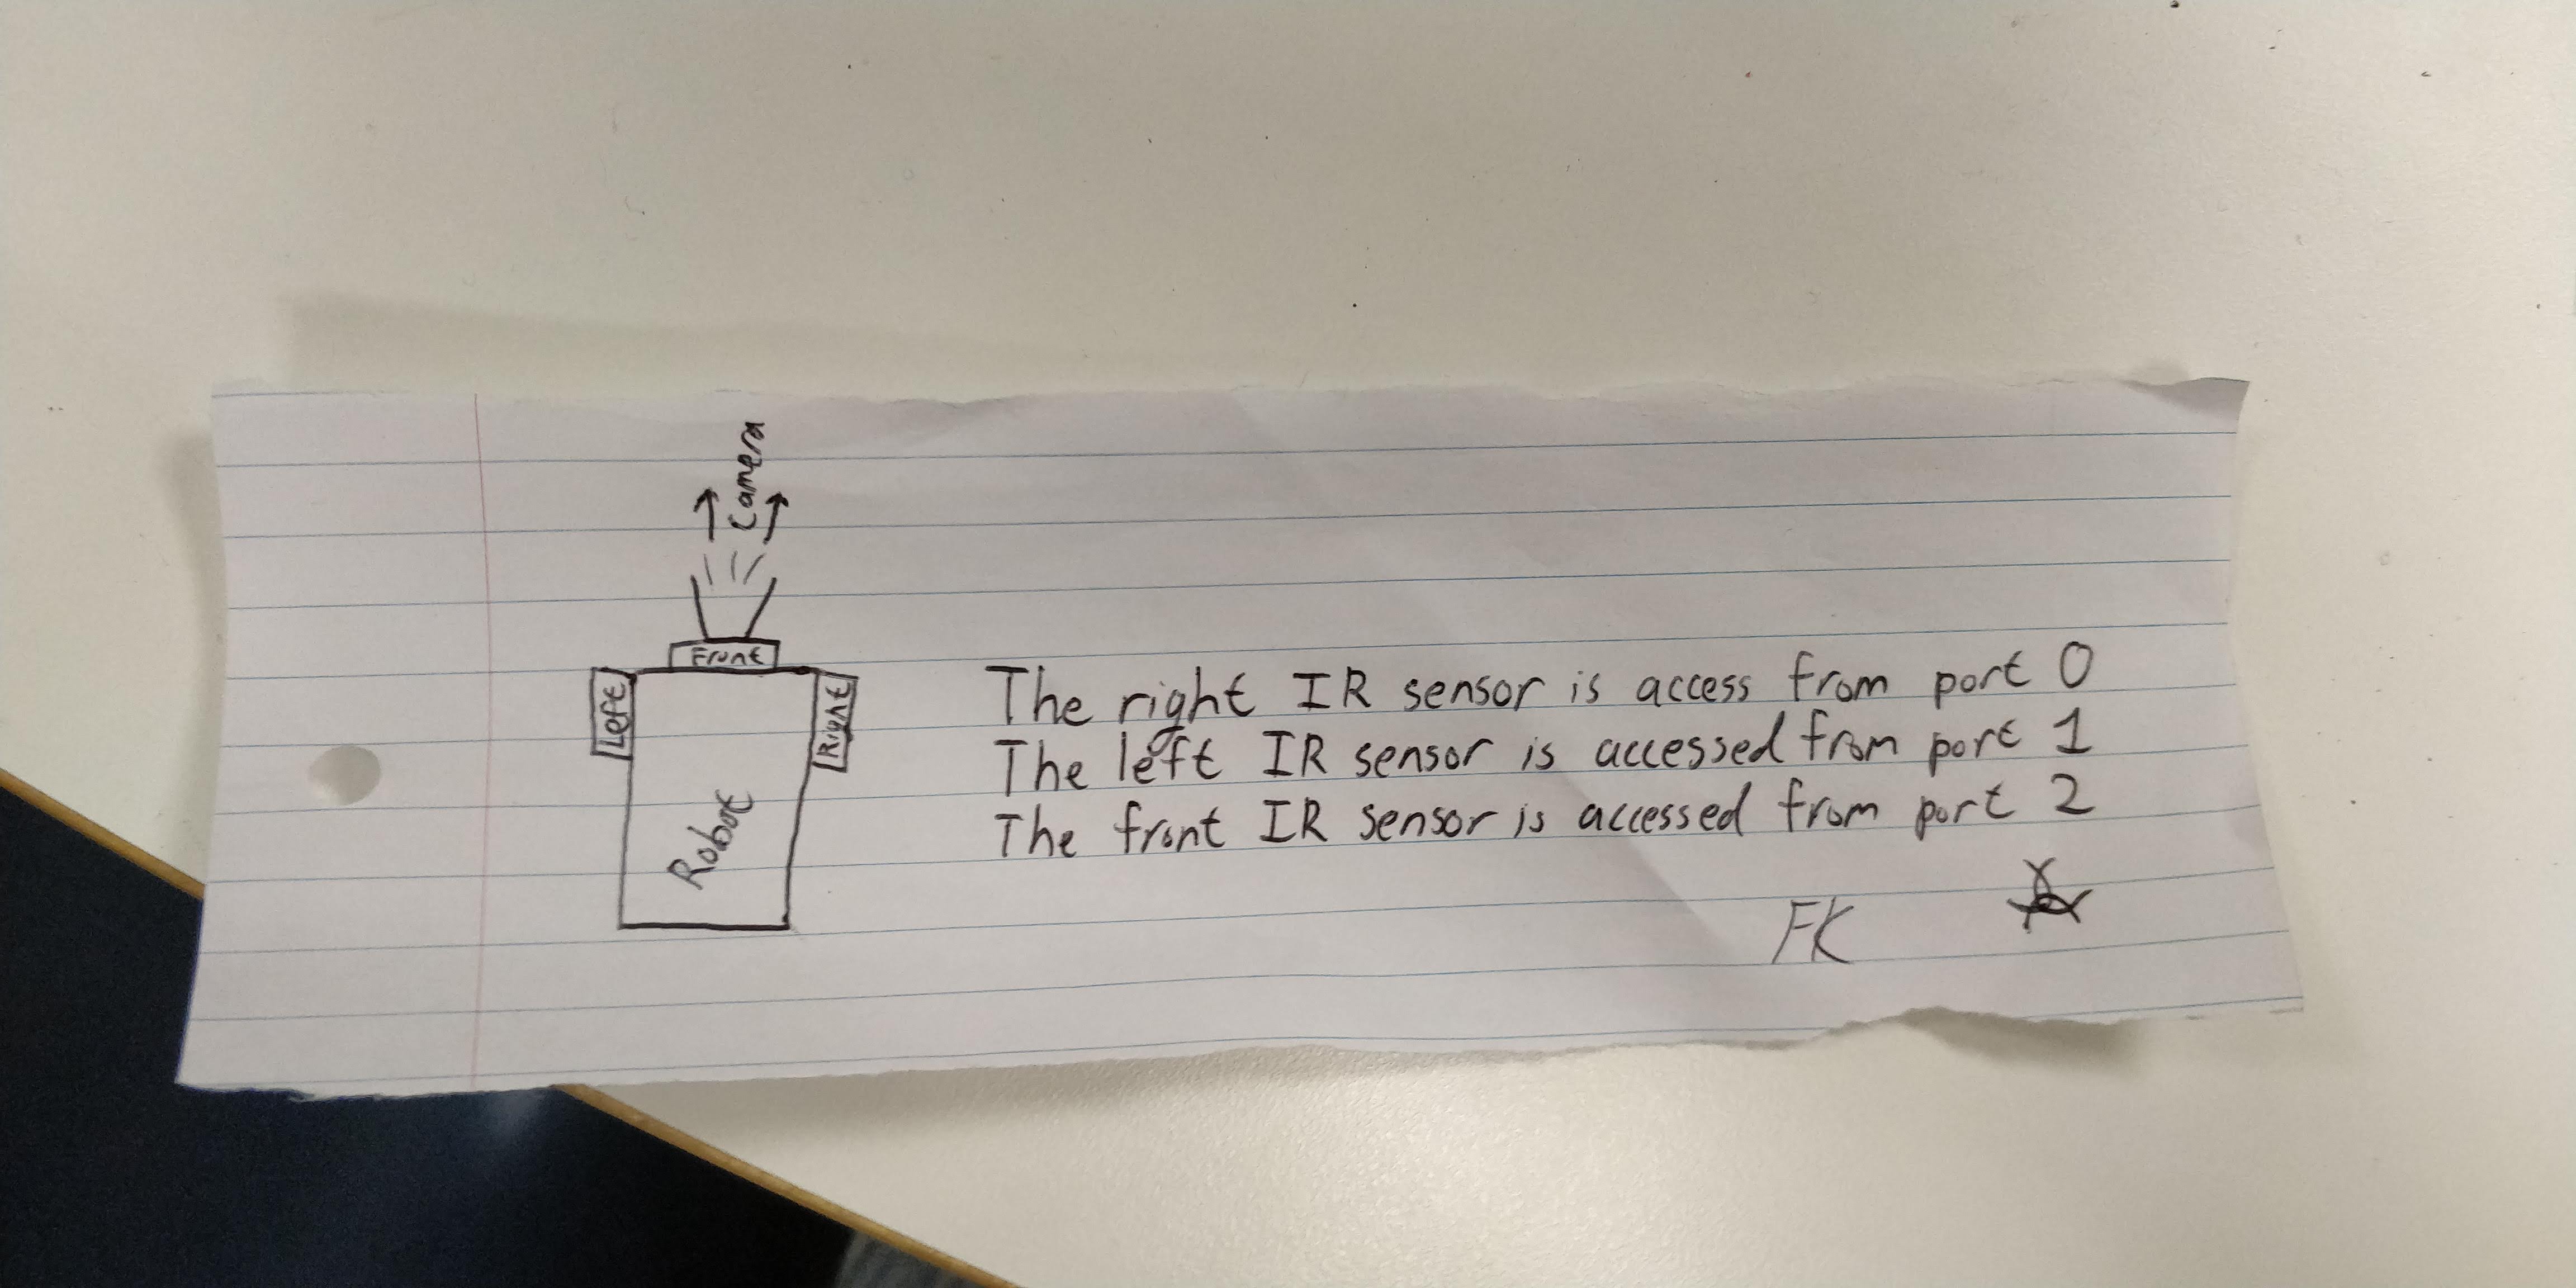 Camera
Front
Left
Right
Robot
The right IR sensor is access from port 0
The left IR sensor is accessed from port 1
The front IR sensor is accessed from port 2
FK